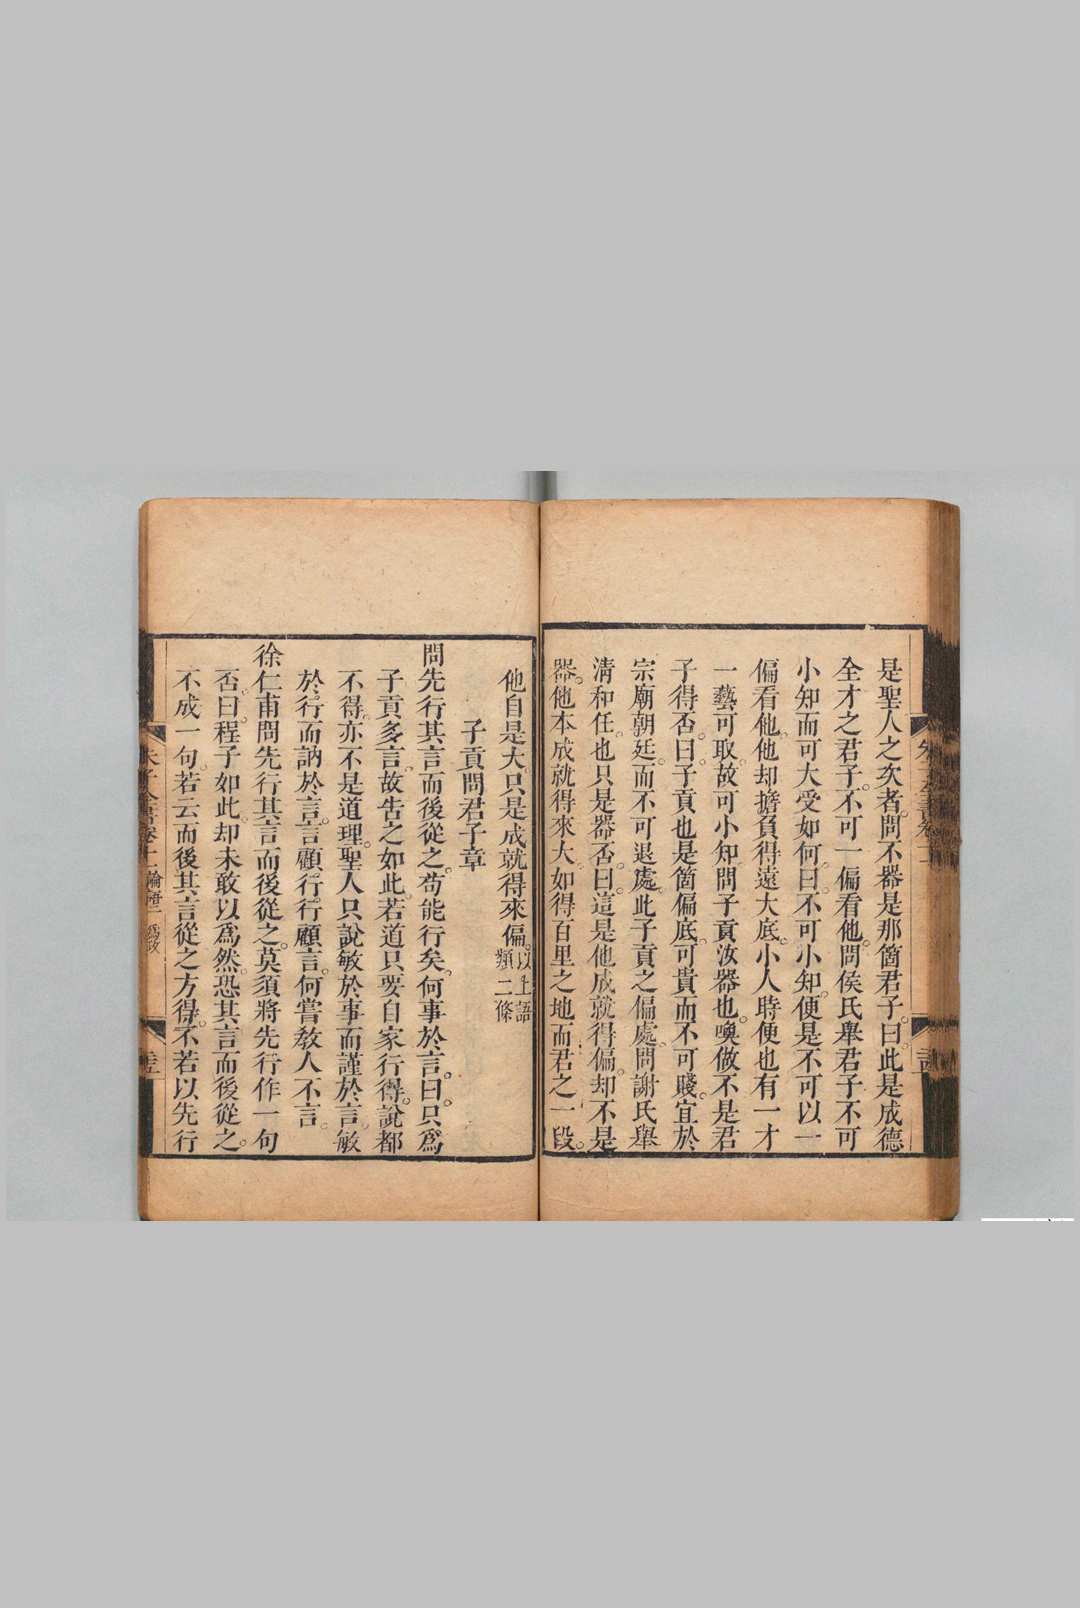 是聖人之次者。問不器是那箇君子。曰此是成德
全才之君子。不可一偏看他。問侯氏舉君子不可
小知而可大受如何。曰不可小知。便是不可以一
偏看他。他却擔負得遠大底。小人時便也有一才
一藝可取。故可小知問子貢汝器也。喚做不是君
子得否。曰。子貢也是箇偏底。可貴而不可賤。宜於
宗廟朝廷。而不可退處。此子貢之偏處。問謝氏舉
清和任。也只是器否。曰。這是他成就得偏。却不是
器。他本成就得來大。如得百里之地而君之一段。
他自是大。只是成就得來偏。以上語類二條
子貢問君子章
問先行其言而後從之。苟能行矣。何事於言。曰。只爲
子貢多言。故告之如此。若道只要自家行得。說都
不得。亦不是道理。聖人只說敏於事而謹於言。敏
於行而訥於言。言顧行。行顧言。何嘗敎人不言。
徐仁甫問先行其言而後從之。莫須將先行作一句
否。曰。程子如此。却未敢以爲然。恐其言而後從之。
不成一句。若云而後其言從之方得。不若以先行
朱子全書卷十一 論語二 爲政